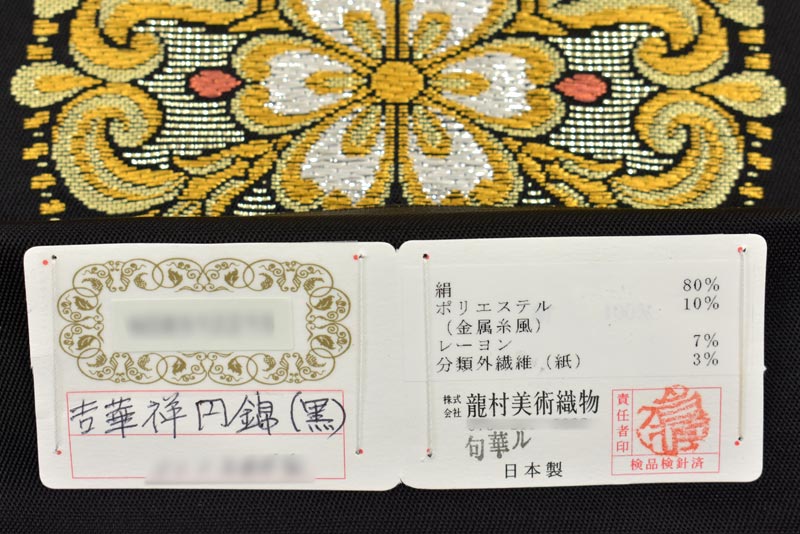 吉華祥円錦(黒)
絹 80%
ポリエステル 10%
(金属糸風)
レーヨン 7%
分類外繊維(紙) 3%
株式会社 龍村美術織物
句華ル
日本製
責任者印
検品検針済